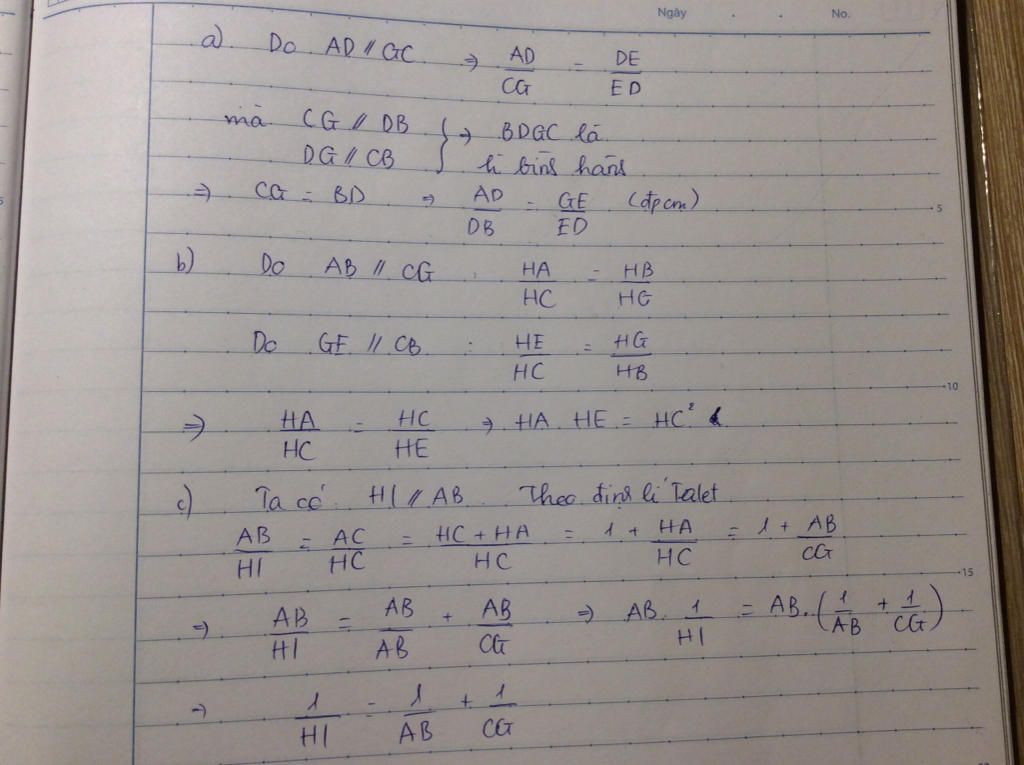 Ngày . . No.
a) Do AD // GC ⇒ AD/CG = DE/ED
mà CG // DB } ⇒ BDGC là
DG // CB } hình bình hành
⇒ CG = BD ⇒ AD/DB = GE/ED (đpcm)
5
b) Do AB // CG : HA/HC = HB/HG
Do GE // CB : HE/HC = HG/HB
10
⇒ HA/HC = HC/HE ⇒ HA . HE = HC²
c) Ta có HI // AB. Theo định lí Talet
AB/HI = AC/HC = (HC + HA)/HC = 1 + HA/HC = 1 + AB/CG
15
⇒ AB/HI = AB/AB + AB/CG ⇒ AB. 1/HI = AB. (1/AB + 1/CG)
⇒ 1/HI = 1/AB + 1/CG